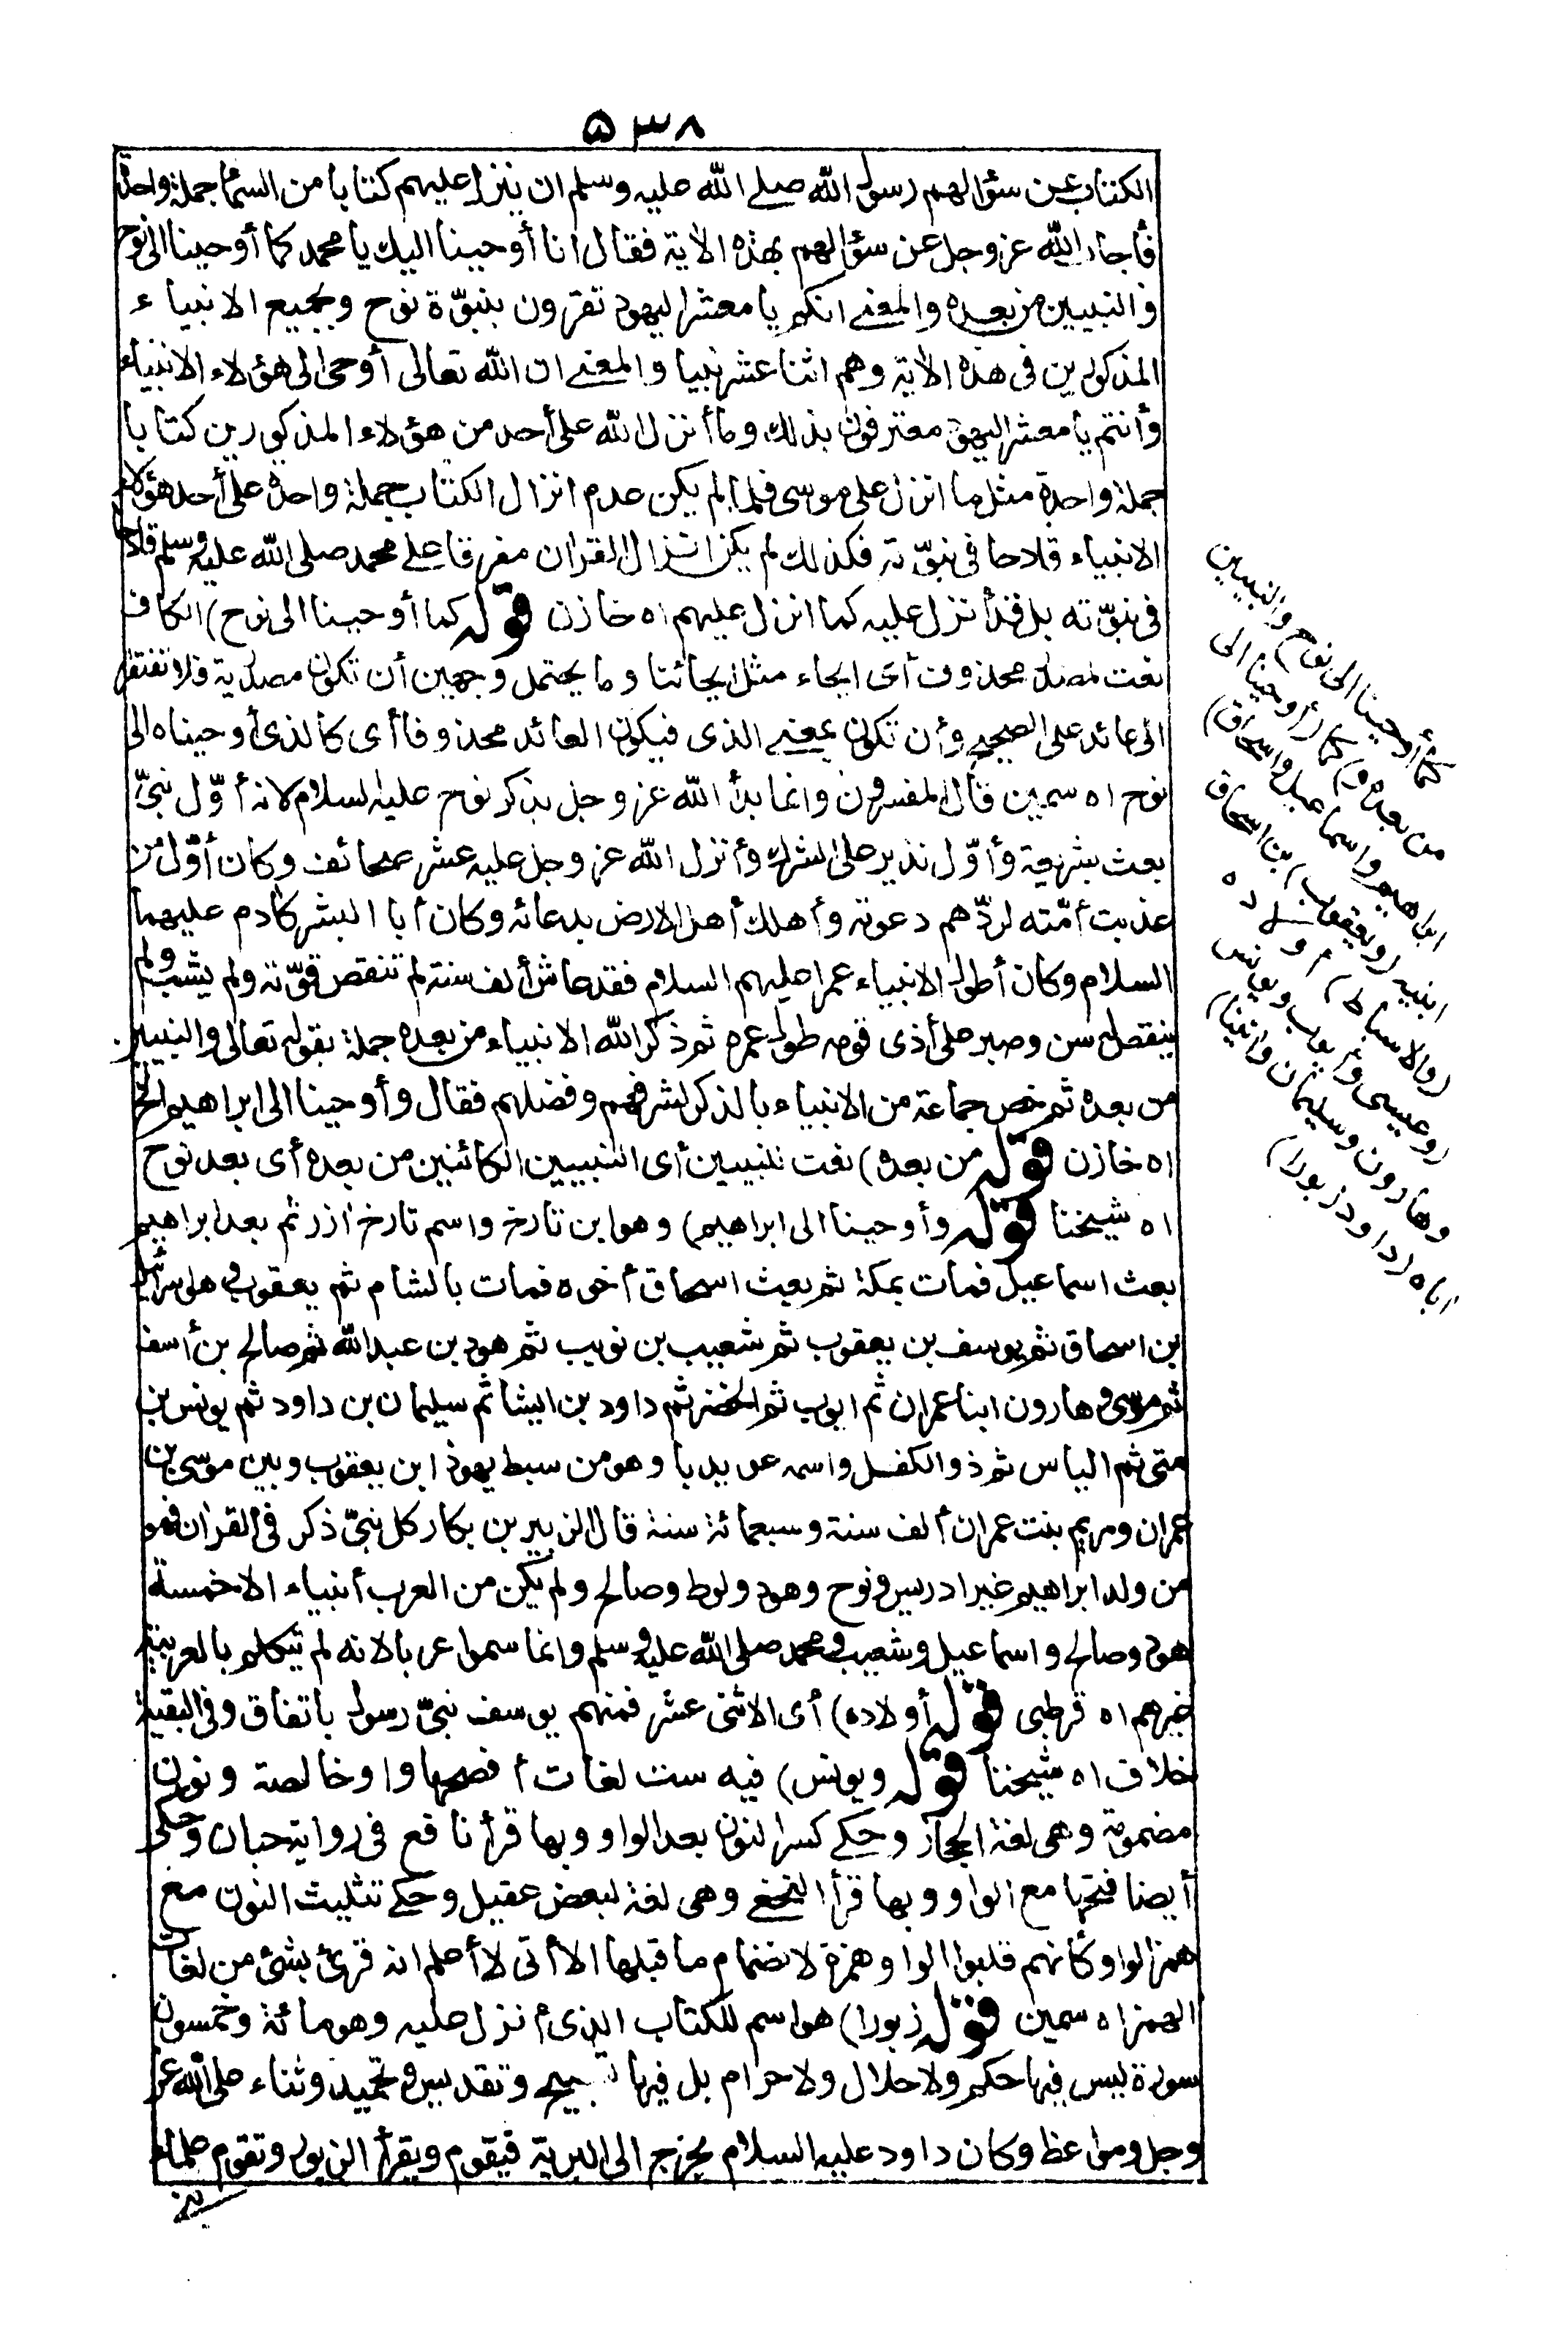 ٥٣٨
الكتاب عن سؤالهم رسول الله صلى الله عليه وسلم ان ينزل عليهم كتابا من السماء جملة واحدة
فأجاب الله عز وجل عن سؤالهم بهذه الاية فقال انا أوحينا اليك يا محمد كما أوحينا الى نوح
والنبيين من بعده والمعنى انكم يا معشر اليهود تقرون بنبوّة نوح وبجميع الانبياء
المذكورين فى هذه الاية وهم اثنا عشر نبيا والمعنى ان الله تعالى أوحى الى هؤلاء الانبياء
وأنتم يا معشر اليهود معترفون بذلك وما أنزل الله على أحد من هؤلاء المذكورين كتابا
جملة واحدة مثل ما انزل على موسى فلما لم يكن عدم انزال الكتاب جملة واحدة على أحد هؤلاء
الانبياء قادحا فى نبوّته فكذلك لم يكن انزال القران مفرقا على محمد صلى الله عليه وسلم قادحا
فى نبوّته بل قد أنزل عليه كما انزل عليهم اه خازن قوله كما أوحينا الى نوح) الكاف
نعت لمصدر محذوف أى ايحاء مثل ايحائنا وما يحتمل وجهين أن تكون مصدرية فلا تفتقر
الى عائد على الصحيح وأن تكون بمعنى الذى فيكون العائد محذوفا أى كالذى أوحيناه الى
نوح اه سمين قال المفسرون وانما بدأ الله عز وجل بذكر نوح عليه السلام لانه أوّل نبىّ
بعث بشريعة وأوّل نذير على الشرك وأنزل الله عز وجل عليه عشر صحائف وكان أوّل من
عذبت أمّته لردّهم دعوته وأهلك أهل الارض بدعائه وكان أبا البشر كادم عليهما
السلام وكان أطول الانبياء عمرا عليهم السلام فقد عاش ألف سنة لم تنقص قوّته ولم يشب ولم
ينقص له سن وصبر على أذى قومه طول عمره ثم ذكر الله الانبياء من بعده جملة بقوله تعالى والنبيين
من بعده ثم خص جماعة من الانبياء بالذكر لشرفهم وفضلهم فقال وأوحينا الى ابراهيم الخ
اه خازن قوله من بعده) نعت للنبيين أى النبيين الكائنين من بعده أى بعد نوح
اه شيخنا قوله وأوحينا الى ابراهيم) وهو ابن تارخ واسم تارخ ازر ثم بعد ابراهيم
بعث اسماعيل فمات بمكة ثم بعث اسحاق أخوه فمات بالشام ثم يعقوب وهو اسرائيل
بن اسحاق ثم يوسف بن يعقوب ثم شعيب بن نويب ثم هود بن عبد الله ثم صالح بن أسف
ثم موسى وهارون ابنا عمران ثم ايوب ثم الخضر ثم داود بن ايشا ثم سليمان بن داود ثم يونس بن
متى ثم الياس ثم ذو الكفل واسمه عويديا وهو من سبط يهوذ ابن يعقوب وبين موسى بن
عمران ومريم بنت عمران ألف سنة وسبعمائة سنة قال الزبير بن بكار كل نبىّ ذكر فى القران فهو
من ولد ابراهيم غير ادريس ونوح وهود ولوط وصالح ولم يكن من العرب أنبياء الا خمسة
هود وصالح واسماعيل وشعيب ومحمد صلى الله عليه وسلم وانما سموا عربا لانه لم يتكلم بالعربية
غيرهم اه قرطبى قوله أولاده) أى الاثنى عشر فمنهم يوسف نبىّ رسول باتفاق وفى البقية
خلاف اه شيخنا قوله ويونس) فيه ست لغات أفصحها واو خالصة ونون
مضمومة وهى لغة الحجاز وحكى كسر النون بعد الواو وبها قرأ نافع فى رواية حبان وحكى
أيضا فتحها مع الواو وبها قرأ النخعى وهى لغة لبعض عقيل وحكى تثليث النون مع
همز الواو كأنهم قلبوا الواو همزة لانضمام ما قبلها الا أنى لا أعلم انه قرئ بشئ من لغات
الهمز اه سمين قوله زبورا) هو اسم للكتاب الذى أنزل عليه وهو مائة وخمسون
سورة ليس فيها حكم ولا حلال ولا حرام بل فيها تسبيح وتقديس وتحميد وثناء على الله عز
وجل ومواعظ وكان داود عليه السلام يخرج الى البرية فيقوم ويقرأ الزبور وتقوم علماء
كما أوحينا الى نوح والنبيين
من بعده و) كما (أوحينا الى
ابراهيم واسماعيل واسحاق)
ابنيه (ويعقوب) بن اسحاق
(والاسباط) أولاده
(وعيسى وأيوب ويونس
وهارون وسليمان واتينا)
اباه (داود زبورا)